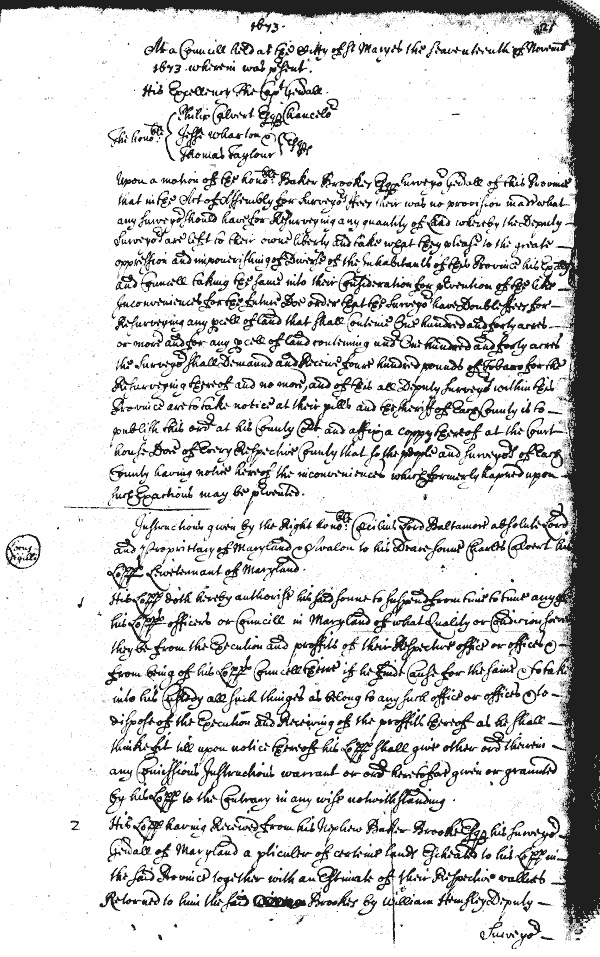 1673.
21
At a Councill held at the Citty of St Maryes the seaventeenth of Novemb
1673 wherein was psent.
His Excellency the Capt Genall.
Philip Calvert Esqr Chancelor
The honoble Jesse Wharton &
Thomas Taylour Esqrs
Upon a motion of the honoble Baker Brookes Esqr Surveyor Genall of this Province
that in the Act of Assembly for Surveyors ffees their was no provision made what
any Surveyor should have for Resurveying any quantity of Land whereby the Deputy
Surveyors are left to their owne liberty and take what they please to the greate
oppression and impoverishing of Diverse of the Inhabitants of this Province his Excelly
and Councell taking the same into their Consideration for pvention of the like
Inconveniences for the future Doe order that the Surveyor have Double ffees for
Resurveying any pcell of land that shall conteine One hundred and forty acres
or more and for any pcell of land conteining undr One hundred and forty acres
the Surveyor shall Demannd and Receive foure hundred pounds of Tobacco for the
Resurveying thereof and no more, and of this all Deputy Surveyors within this
Province are to take notice at their pills and the Sheriff of Each County is to
publish this ordr at his County Cort and affix a coppy thereof at the Court
house Dore of Every Respective County that so the people and Surveyors of Each
County having notice hereof the inconveniences which formerly hapned upon
such Exactions may be pvented.
Instructions given by the Right honoble Cecilius Lord Baltamore absolute Lord
and Proprietary of Maryland & Avalon to his Deare sonne Charles Calvert his
Lopps Leivetennant of Maryland.
1 His Lopp doth hereby authorise his said sonne to suspend from time to time any of
his Lopps officers or Councill in Maryland of what Quality or Condicion soever
they be from the Execution and proffits of their Respective office or offices &
from being of his Lopps Councell there if he finde Cause for the same & to take
into his Custody all such thinges as belong to any such office or offices & to
dispose of the Execution and Receiving of the proffitts thereof as he shall
thinke fit till upon notice thereof his Lopp shall give other ordr therein
any Comissions Instructions warrant or ordr heretofore given or graunted
by his Lopp to the Contrary in any wise notwithstanding.
2 His Lopp having Received from his Nephew Baker Brooke Esqr his Surveyor
Genall of Maryland a pticuler of certeine lands Escheated to his Lopp in
the said Province together with an Estimate of their Respective vallues
Returned to him the said Brookes by William Hemsley Deputy
Surveyor